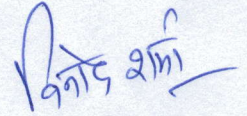 विनोद शर्मा